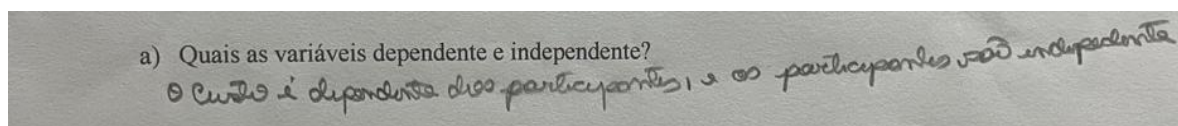 a) Quais as variáveis dependente e independente?
O Custo é dependente dos participantes, e os participantes são independente